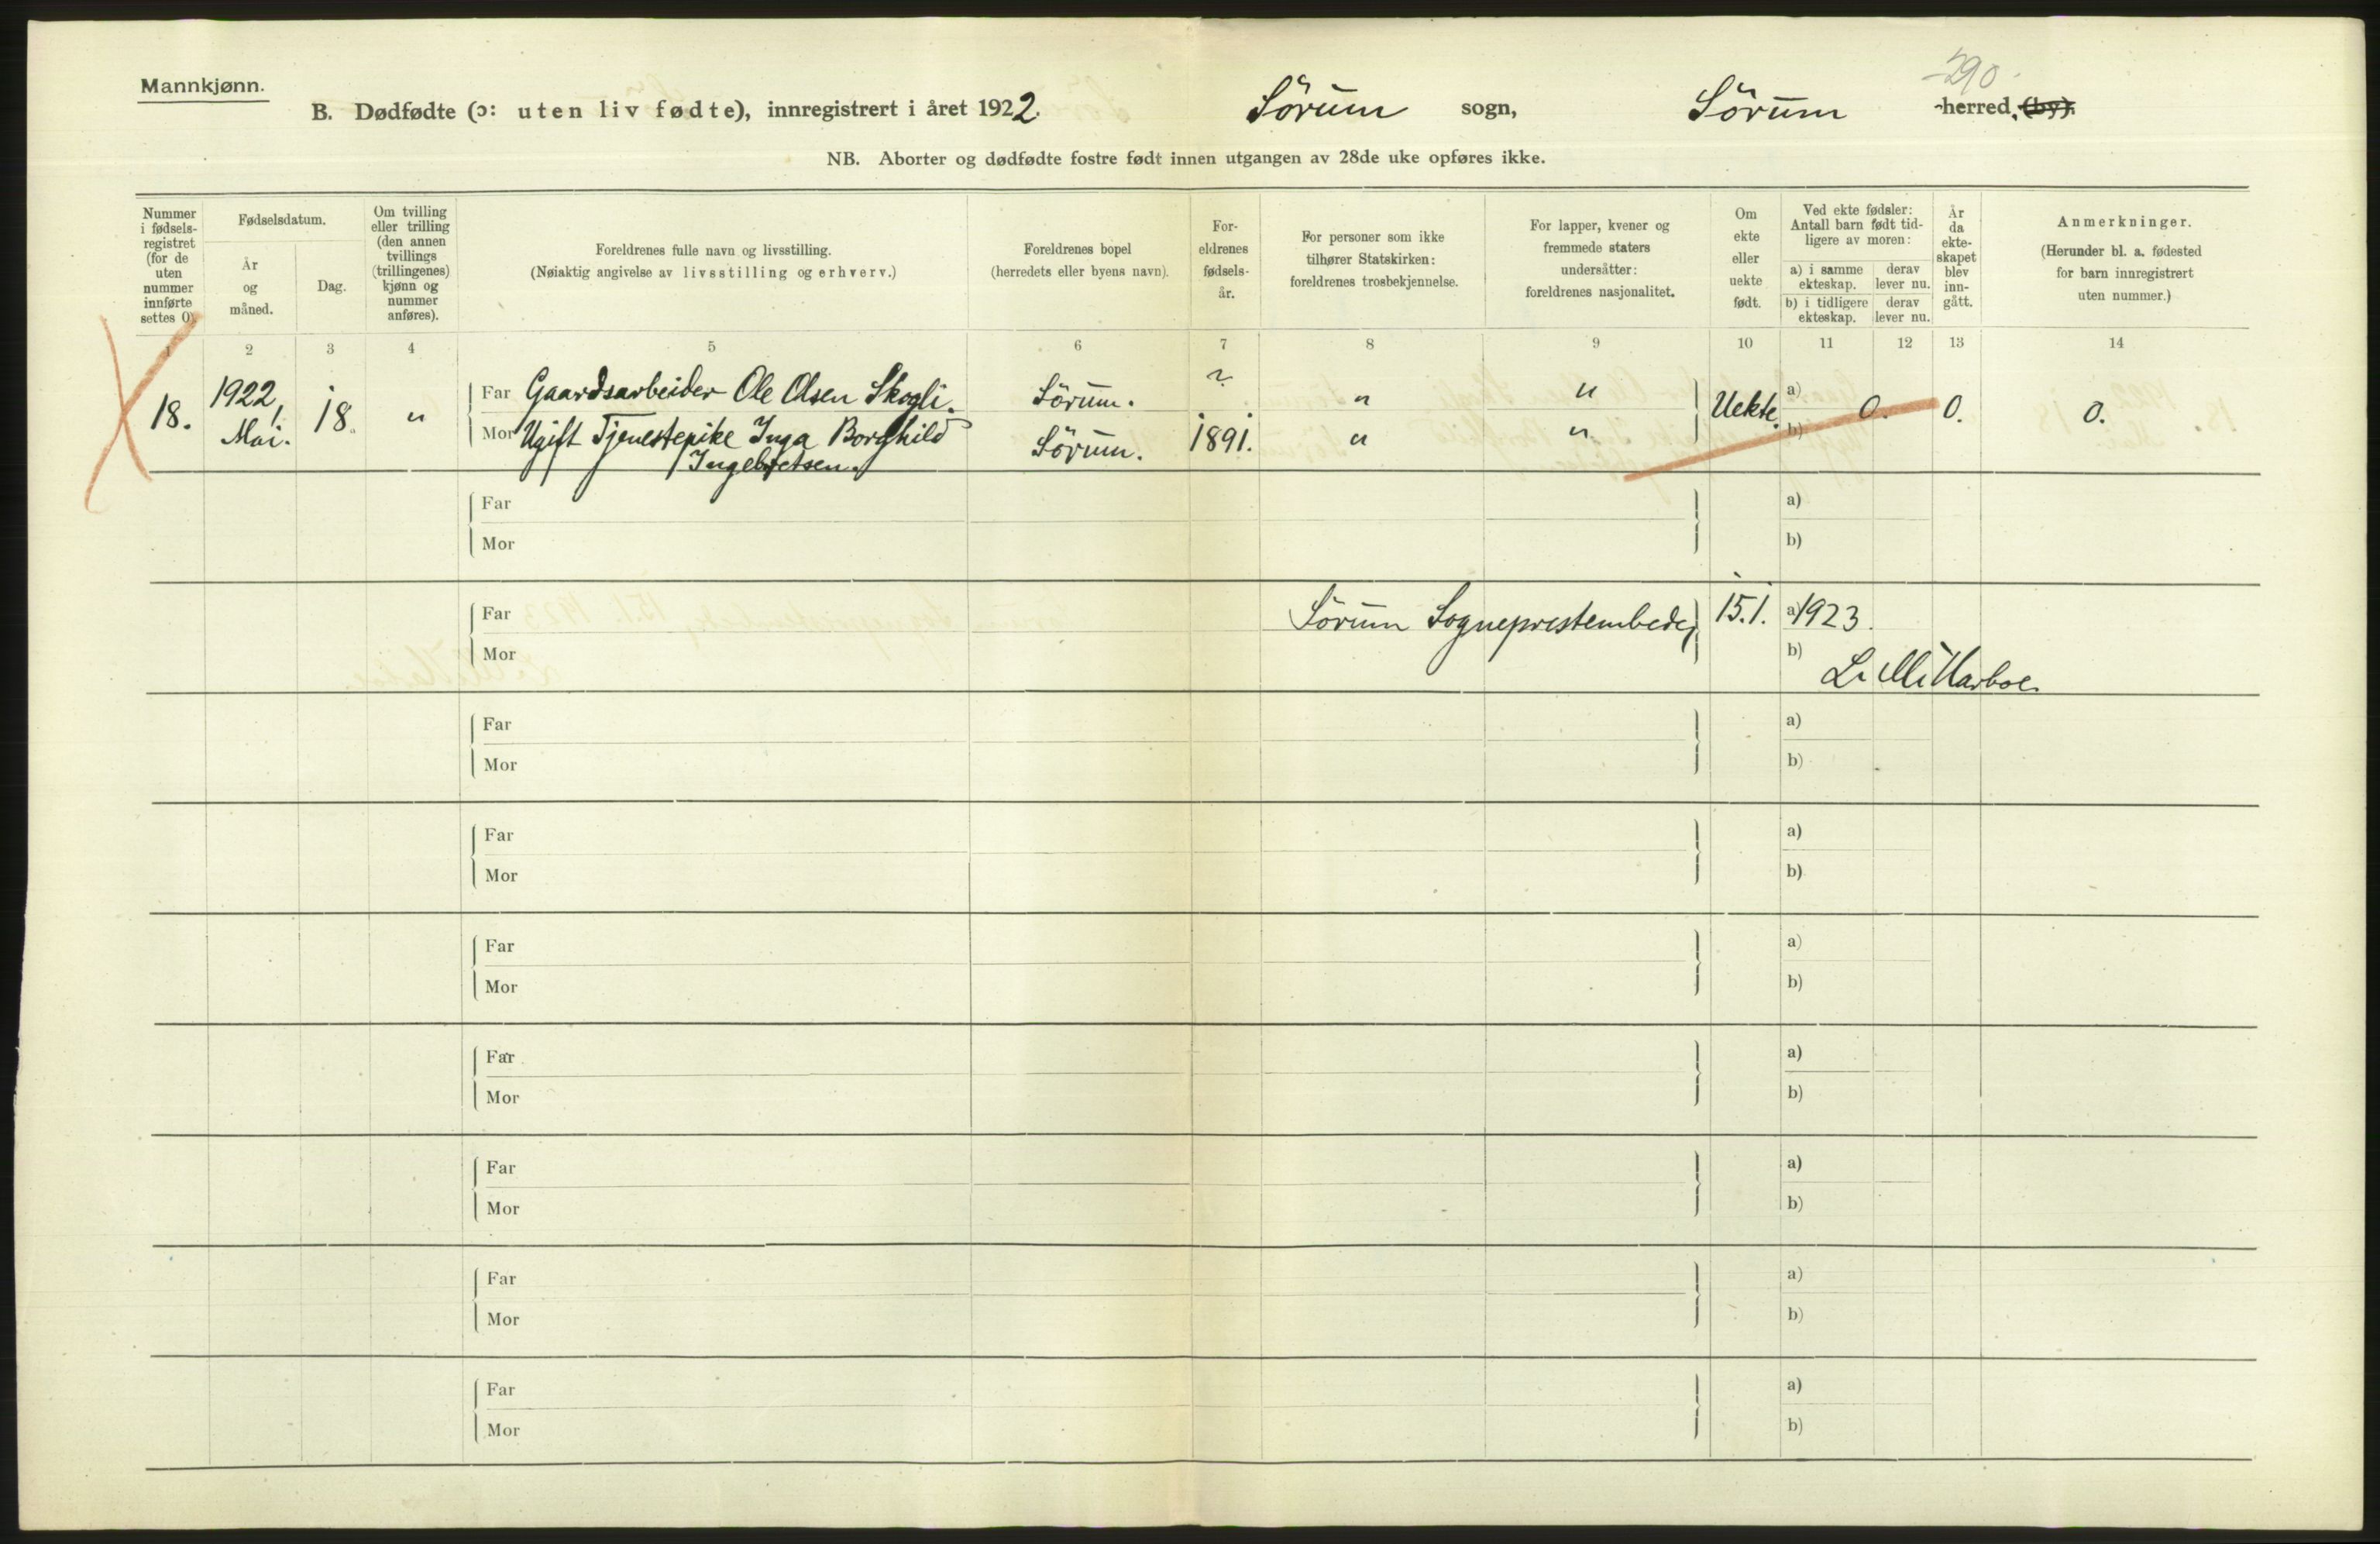 290
Mannkjønn.
B. Dødfødte (ɔ: uten liv fødte), innregistrert i året 1922. Sörum sogn, Sörum -herred, (by).
NB. Aborter og dødfødte fostre født innen utgangen av 28de uke opføres ikke.
Nummer i fødsels-registret (for de uten nummer innførte settes 0).
Fødselsdatum.
År og måned.
Dag.
Om tvilling eller trilling (den annen tvillings (trillingenes) kjønn og nummer anføres).
Foreldrenes fulle navn og livsstilling.
(Nøiaktig angivelse av livsstilling og erhverv.)
Foreldrenes bopel
(herredets eller byens navn).
For-eldrenes fødsels-år.
For personer som ikke tilhører Statskirken: foreldrenes trosbekjennelse.
For lapper, kvener og fremmede staters undersåtter: foreldrenes nasjonalitet.
Om ekte eller uekte født.
Ved ekte fødsler: Antall barn født tid-ligere av moren:
a) i samme ekteskap.
derav lever nu.
b) i tidligere ekteskap.
derav lever nu.
År da ekte-skapet blev inn-gått.
Anmerkninger.
(Herunder bl. a. fødested for barn innregistrert uten nummer.)
1 2 3 4 5 6 7 8 9 10 11 12 13 14
Far Gaardsarbeider Ole Olsen Skogli. Sörum. ? " " a)
18. 1922, Mai. 18. " Uekte. 0. 0. 0.
Mor Ugift Tjenestepike Inga Borghild Sörum. 1891. " " b)
Ingebretsen.
Far a)
Mor b)
Far Sörum Sogneprestembede, 15.1. a) 1923.
Mor b)
L. M. Harboe.
Far a)
Mor b)
Far a)
Mor b)
Far a)
Mor b)
Far a)
Mor b)
Far a)
Mor b)
Far a)
Mor b)
Far a)
Mor b)